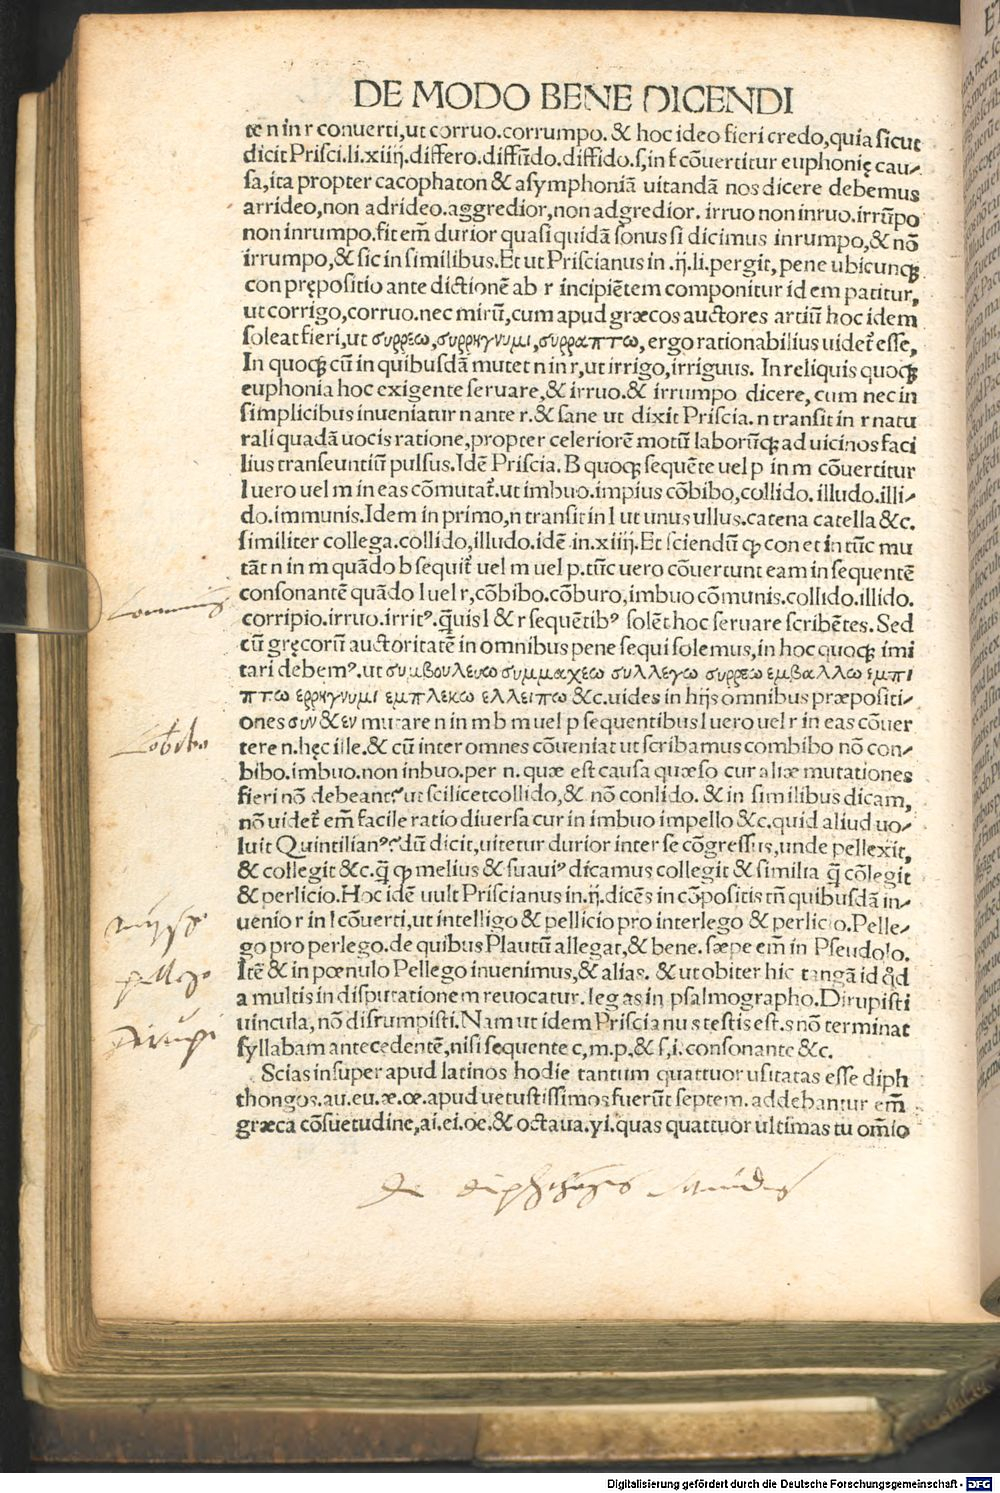 DE MODO BENE DICENDI
te n in r conuerti,ut corruo.corrumpo. & hoc ideo fieri credo,quia sicut
dicit Prisci.li.xiiij.differo.diffũdo.diffido.s,in f cõuertitur euphonię cau-
sa,ita propter cacophaton & asymphoniã uitandã nos dicere debemus
arrideo,non adrideo.aggredior,non adgredior. irruo non inruo.irrũpo
non inrumpo.fit em̃ durior quasi quidã sonus si dicimus inrumpo,& nõ
irrumpo,& sic in similibus.Et ut Priscianus in .ij.li.pergit, pene ubicunqꝫ
con prępositio ante dictionẽ ab r incipiẽtem componitur idem patitur,
ut corrigo,corruo.nec mirũ,cum apud græcos auctores artiũ hoc idem
soleat fieri,ut συρρεω,συρρηγνυμι,συρραπτω, ergo rationabilius uidet᷑ esse,
In quoqꝫ cũ in quibusdã mutet n in r,ut irrigo,irriguus. In reliquis quoqꝫ
euphonia hoc exigente seruare,& irruo.& irrumpo dicere, cum nec in
simplicibus inueniatur n ante r.& sane ut dixit Priscia.n transit in r natu
rali quadã uocis ratione,propter celeriorẽ motũ laborũqꝫ ad uicinos faci
lius transeuntiũ pulsus.Idẽ Priscia. B quoqꝫ sequẽte uel p in m cõuertitur
l uero uel m in eas cõmutat᷑.ut imbuo.impius cõbibo,collido. illudo.illi-
do.immunis.Idem in primo,n transit in l ut unus ullus.catena catella &c.
similiter collega.collido,illudo.idẽ.in.xiiij.Et sciendũ ꝙ con et in tũc mu
tãt n in m quãdo b sequit᷑ uel m uel p.tũc uero cõuertunt eam in sequentẽ
consonantẽ quãdo l uel r,cõbibo.cõburo,imbuo cõmunis.collido.illido.
corripio.irruo.irritꝰ.q̃uis l & r sequẽtibꝰ solẽt hoc seruare scribẽtes. Sed
cũ gręcorũ auctoritatẽ in omnibus pene sequi solemus,in hoc quoqꝫ imi
tari debemꝰ.ut συμβουλευω συμμαχεω συλλεγω συρρεω εμβαλλω εμπι
πτω ερρηγνυμι εμπλεκω ελλειπω &c.uides in hijs omnibus præpositi-
ones συν & εν mutare n in m b m uel p sequentibus l uero uel r in eas cõuer
tere n.hęc ille.& cũ inter omnes cõueniat ut scribamus combibo nõ con-
bibo.imbuo.non inbuo.per n. quæ est causa quæso cur aliæ mutationes
fieri nõ debeant?ut scilicet collido,& nõ conlido. & in similibus dicam,
nõ uidet᷑ em̃ facile ratio diuersa cur in imbuo impello &c.quid aliud uo-
luit Quintilianꝰ?dũ dicit,uitetur durior inter se cõgressus,unde pellexit,
& collegit &c.q̃ ꝙ melius & suauiꝰ dicamus collegit & similia q̃ cõlegit
& perlicio.Hoc idẽ uult Priscianus in.ij.dicẽs in cõpositis tñ quibusdã in-
uenio r in l cõuerti,ut intelligo & pellicio pro interlego & perlicio.Pelle-
go pro perlego.de quibus Plautũ allegat,& bene. sæpe em̃ in Pseudolo.
Itẽ & in pœnulo Pellego inuenimus,& alias. & ut obiter hic tangã id q̇d
a multis in disputationem reuocatur.legas in psalmographo.Dirupisti
uincula,nõ disrumpisti.Nam ut idem Priscianus testis est.s nõ terminat
syllabam antecedentẽ,nisi sequente c,m.p,& s,i.consonante &c.
Scias insuper apud latinos hodie tantum quattuor usitatas esse diph
thongos.au.eu.æ.œ.apud uetustissimos fuerũt septem.addebantur em̃
græca cõsuetudine,ai.ei.oe.& octaua.yi.quas quattuor ultimas tu om̃io
Communis
Cõbibo
pellego
Dirupi
de diphthõgis
Digitalisierung gefördert durch die Deutsche Forschungsgemeinschaft - DFG